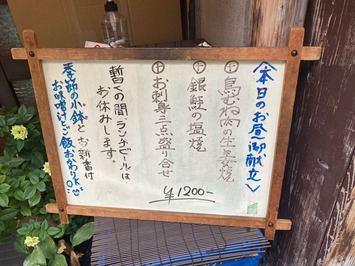 〈本日のお昼御献立〉
㊥鳥むね肉の生姜焼
㊥銀鮭の塩焼
㊥お刺身三点盛り合せ
￥1200-
暫くの間ランチビールは
お休みします。
季節の小鉢とお新香付
お味噌汁とご飯おかわりOK